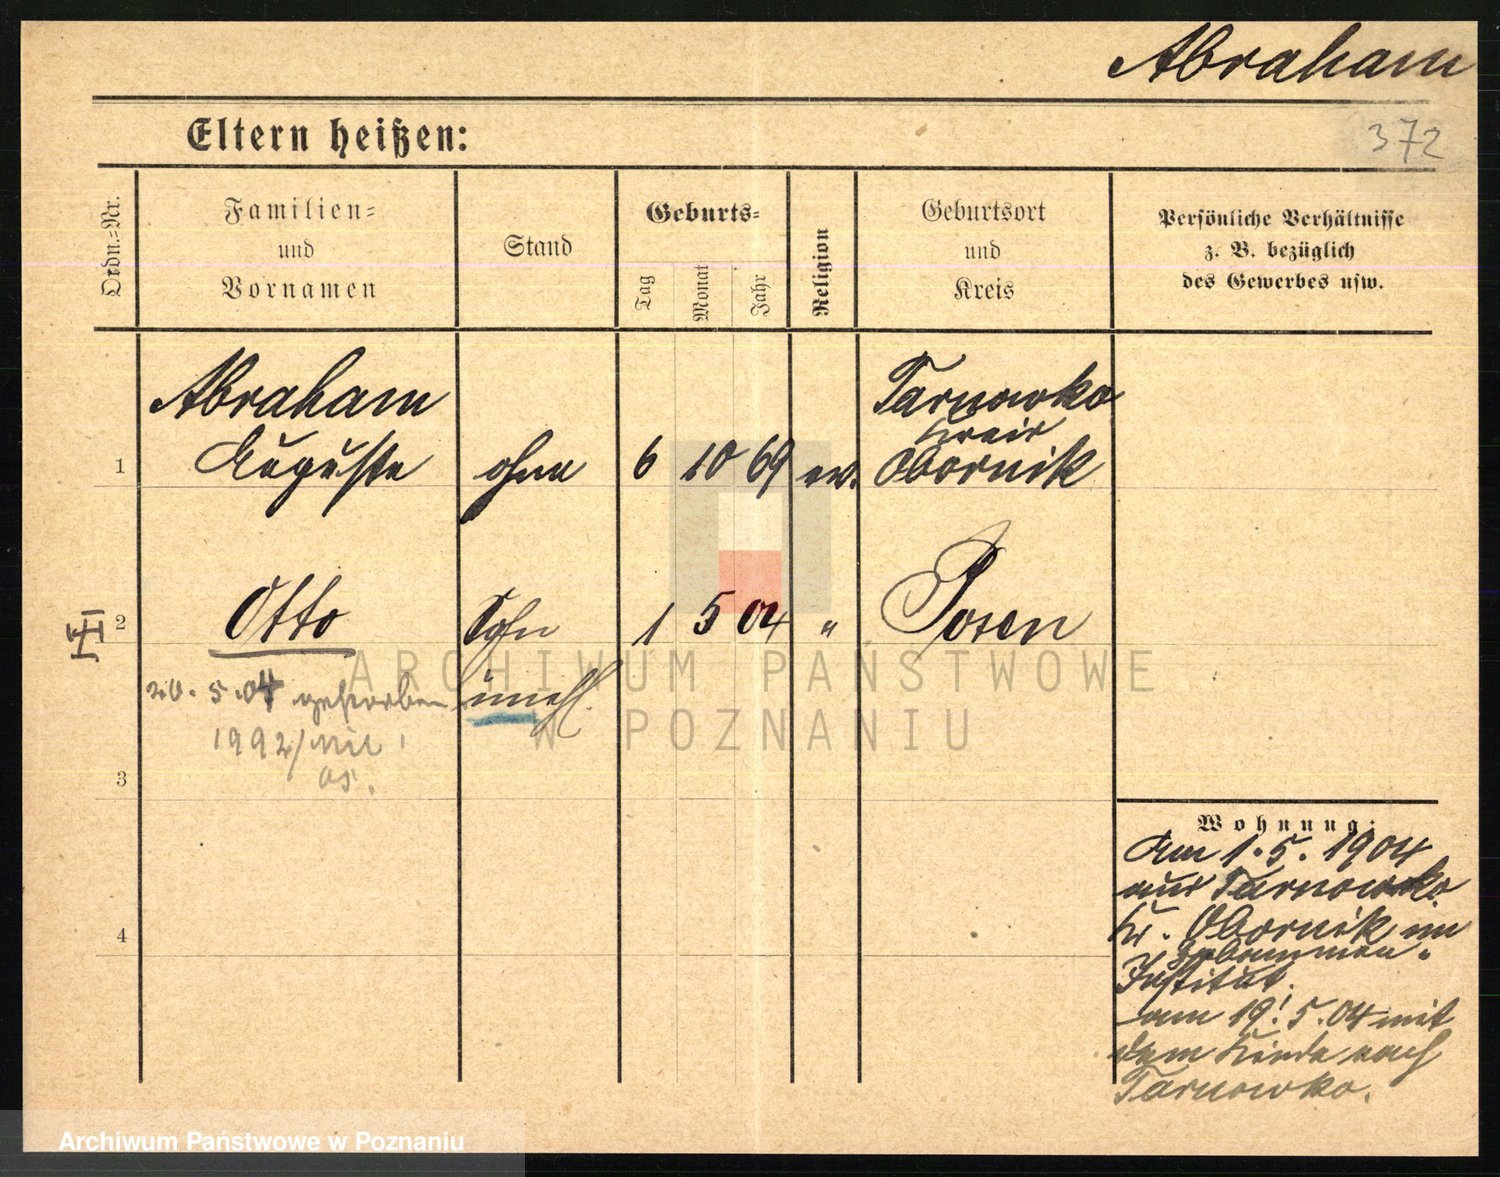 Abraham
372
Eltern heißen:
Ordn.-Nr.
Familien-
und
Vornamen
Stand
Geburts-
Tag
Monat
Jahr
Religion
Geburtsort
und
Kreis
Persönliche Verhältnisse
z. B. bezüglich
des Gewerbes usw.
Abraham
Tarnowko
Kreis
1 Auguste ohne 6 10 69 ev. Obornik
2 Otto Sohn 1 5 04 " Posen
20.5.04 gestorben unehl.
1992/
3
4
ARCHIWUM PAŃSTWOWE
W POZNANIU
Wohnung:
Am 1.5.1904
aus Tarnowko
Kr. Obornik im
Hebammen-
Institut.
am 19.5.04 mit
dem Kinde nach
Tarnowko.
Archiwum Państwowe w Poznaniu